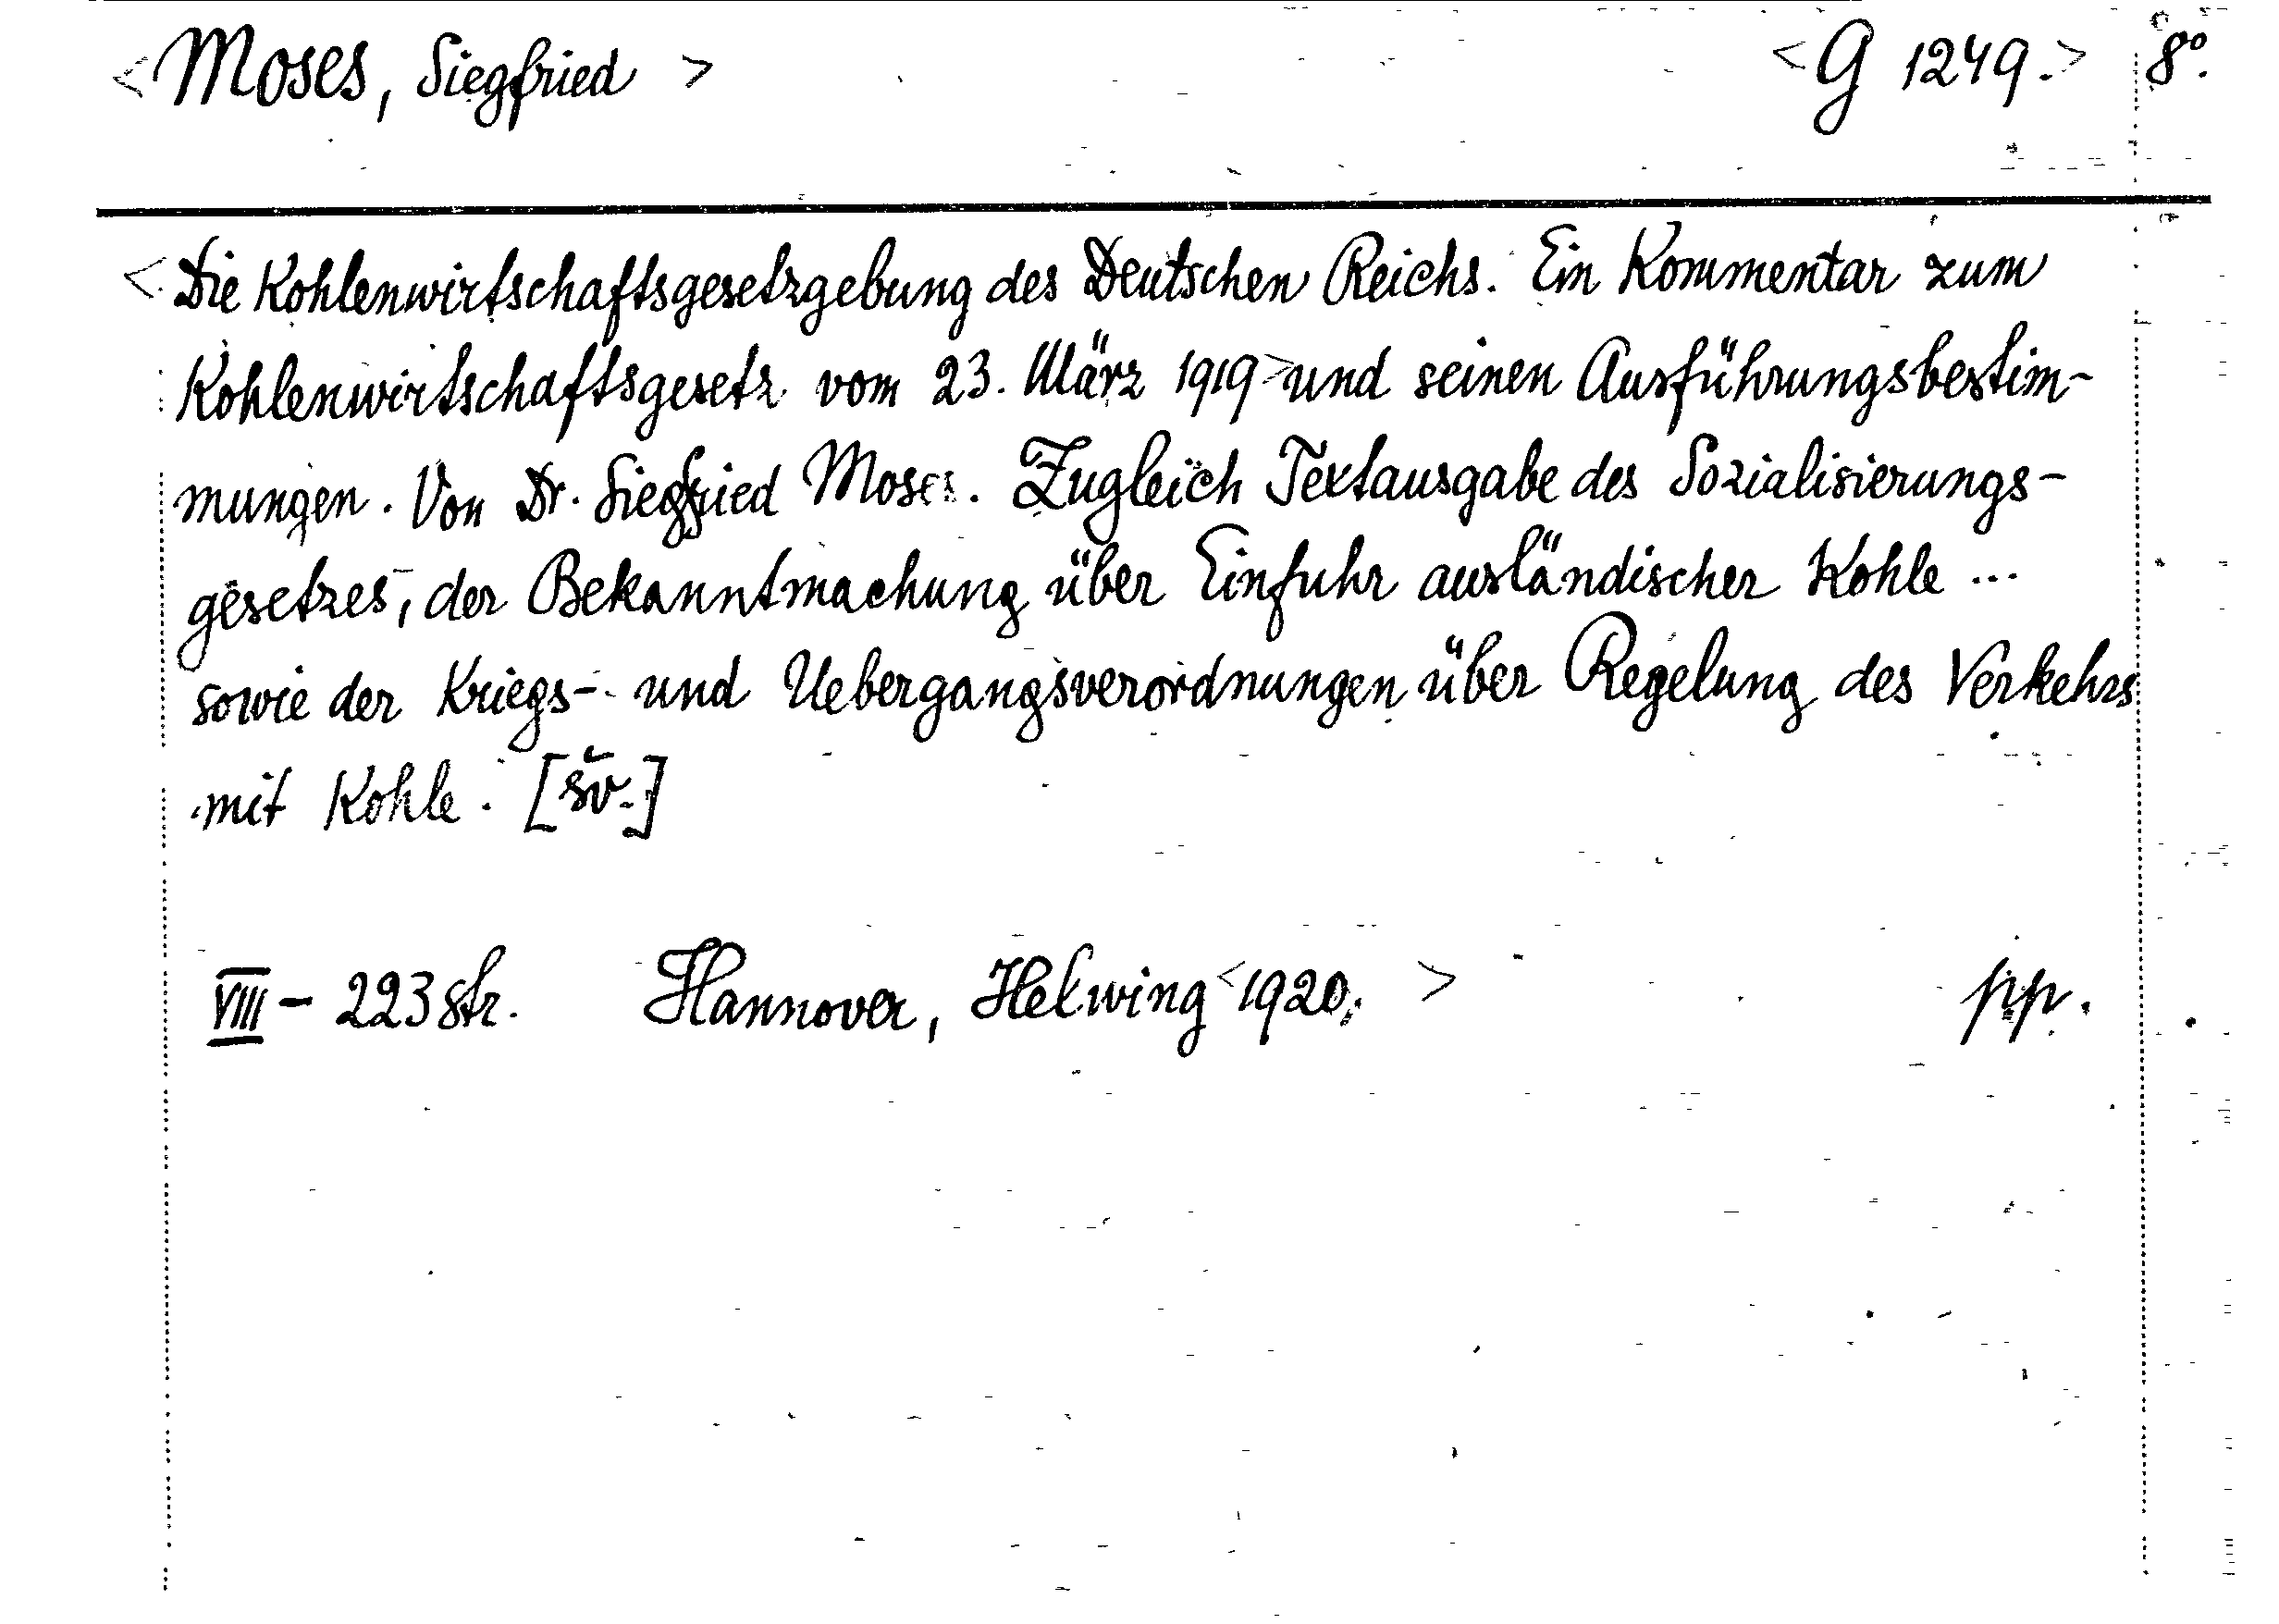 <Moses, Siegfried> <G 1249.> 8°.
<Die Kohlenwirtschaftsgesetzgebung des Deutschen Reichs. Ein Kommentar zum
Kohlenwirtschaftsgesetz vom 23. März 1919> und seinen Ausführungsbestim-
mungen. Von Dr. Siegfried Moses. Zugleich Textausgabe des Sozialisierungs-
gesetzes, der Bekanntmachung über Einfuhr ausländischer Kohle ...
sowie der Kriegs- und Uebergangsverordnungen über Regelung des Verkehrs
mit Kohle. [šv.]
VIII - 223 str. Hannover, Helwing <1920. > pp.